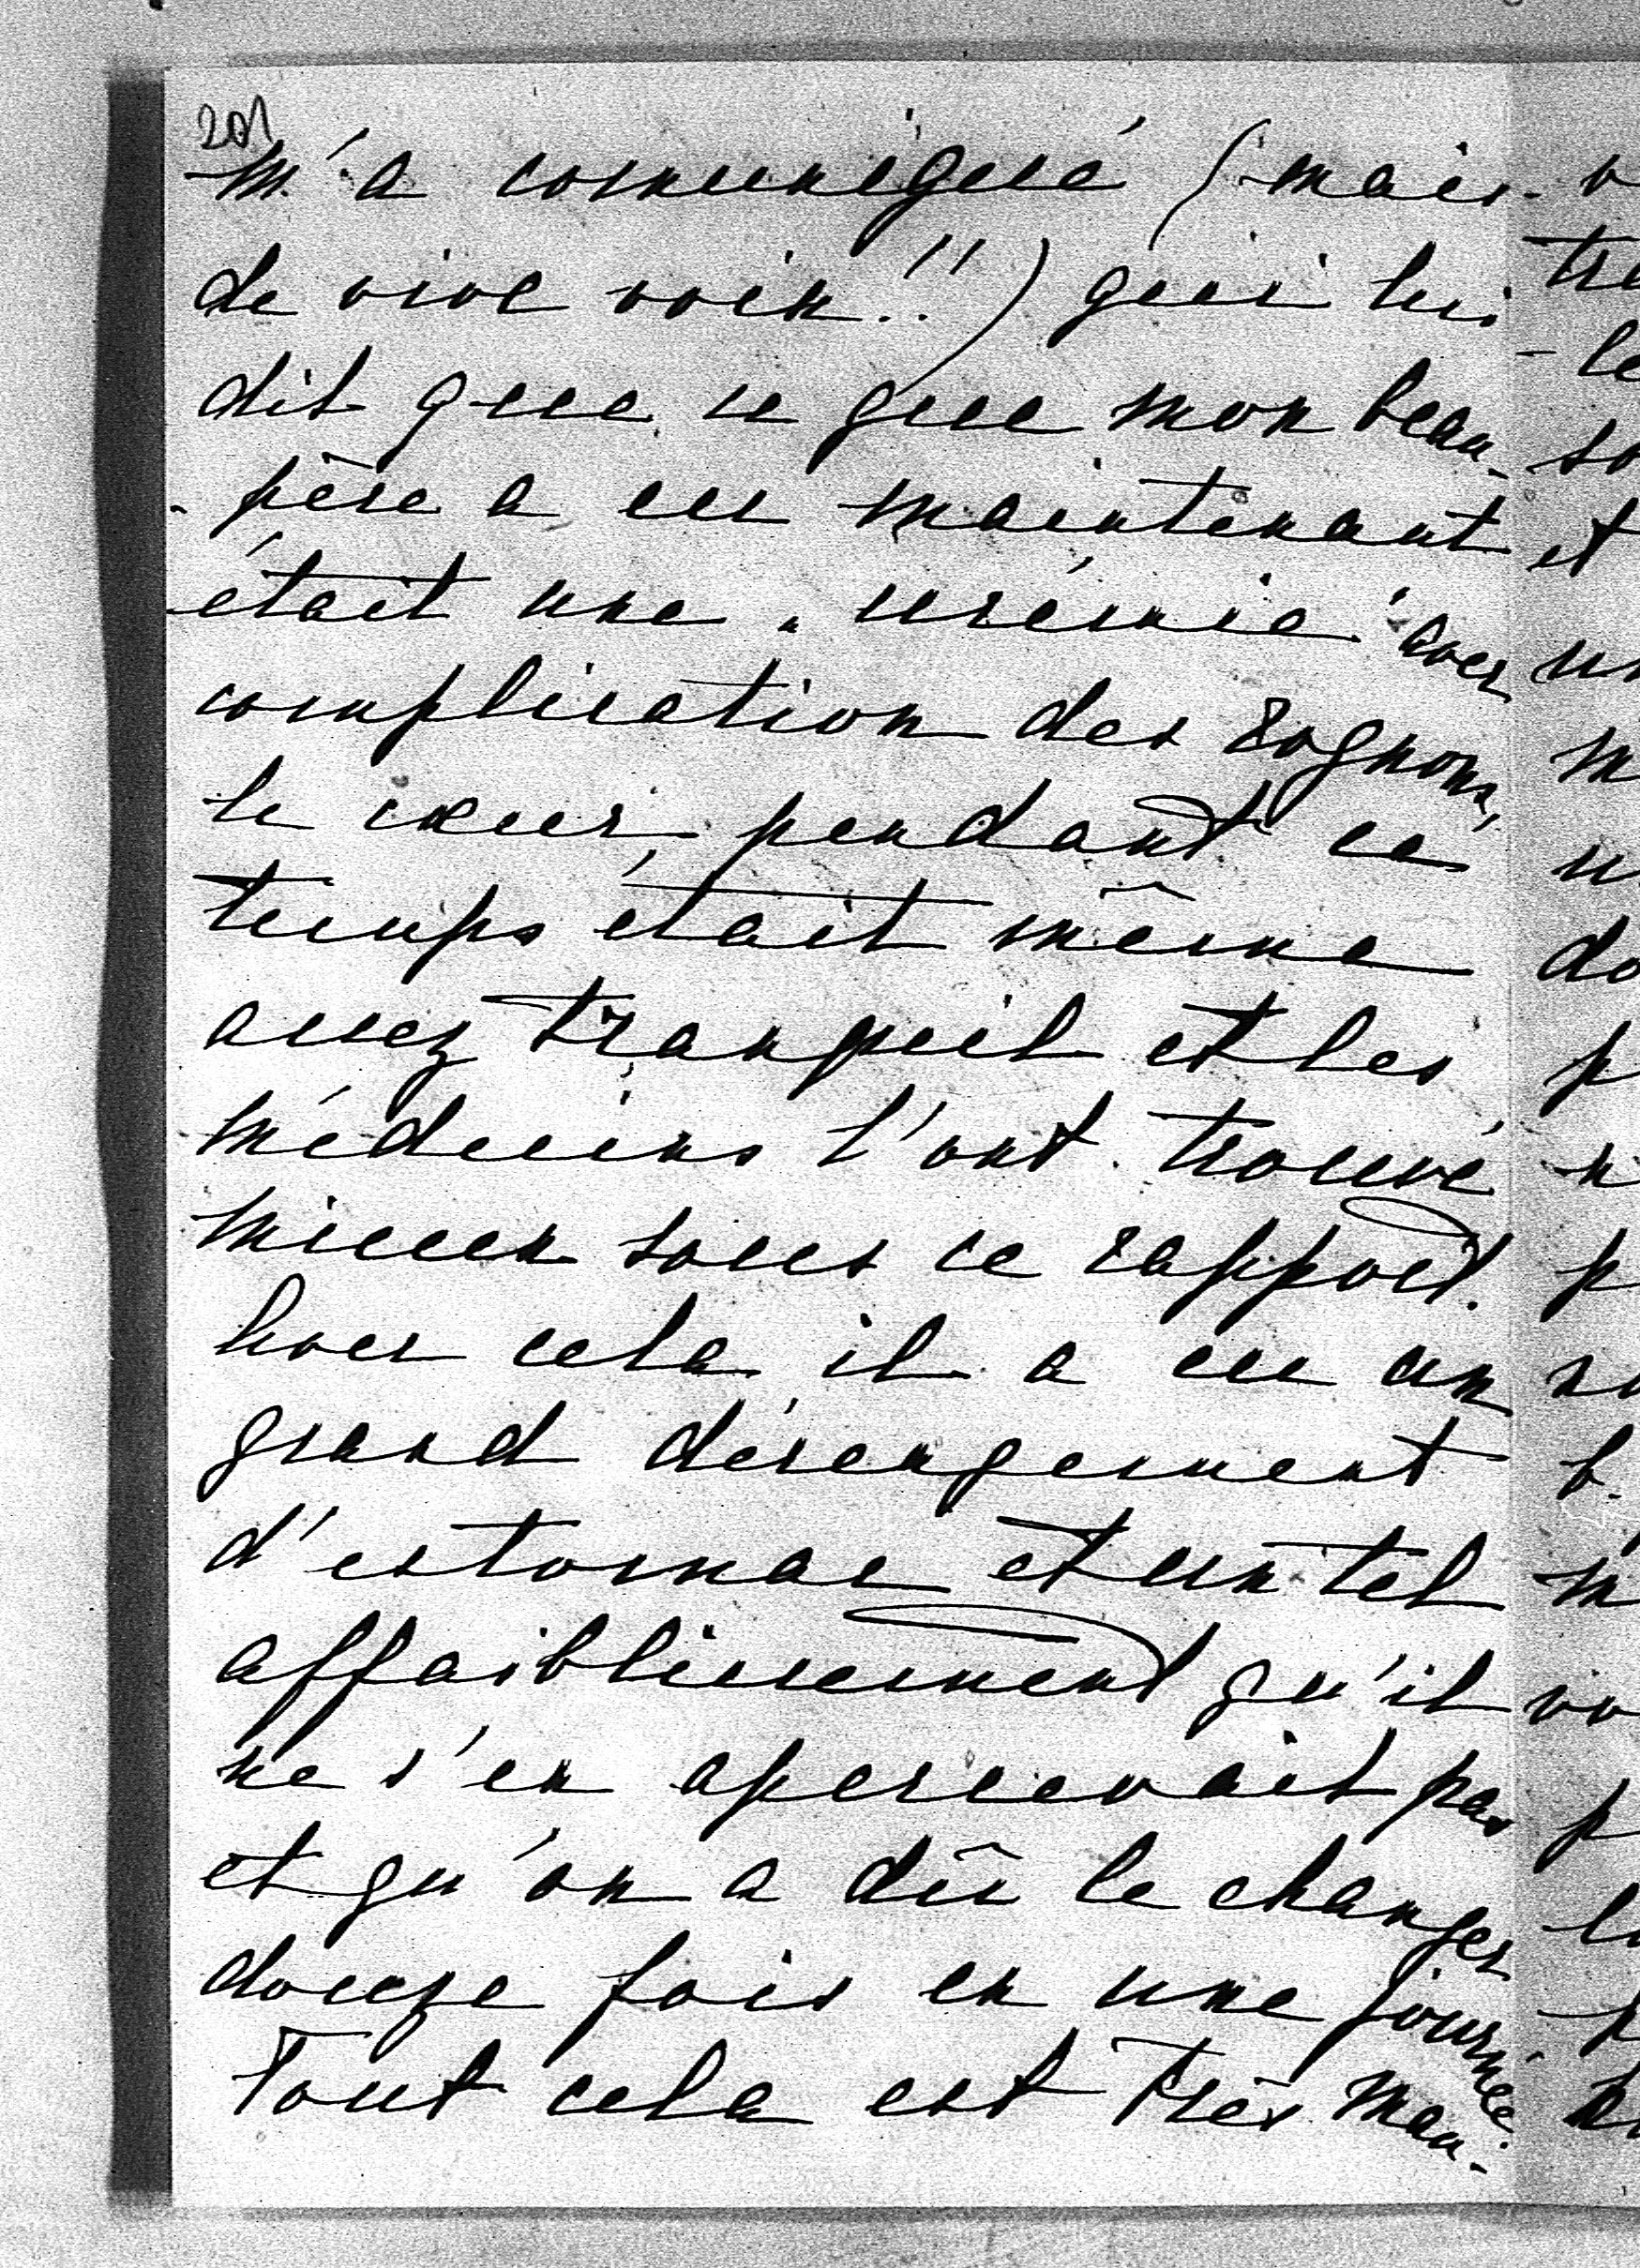 201
m'a comuniqué (mais
de vive voix!!) qui lui
dit que ce que mon beau-
-père a eu maintenant
était une „urémie" avec
complication des rognons,
le cœur pendant ce
temps était même
assez tranquil et les
médecins l'ont trouvé
mieux sous ce rapport.
hors cela il a eu un
grand dérengement
d'estomac et un tel
affaiblissement qu'il
ne s'en apercevait pas
et qu'on a dû le changer
douze fois en une journée.
Tout cela est très mau-